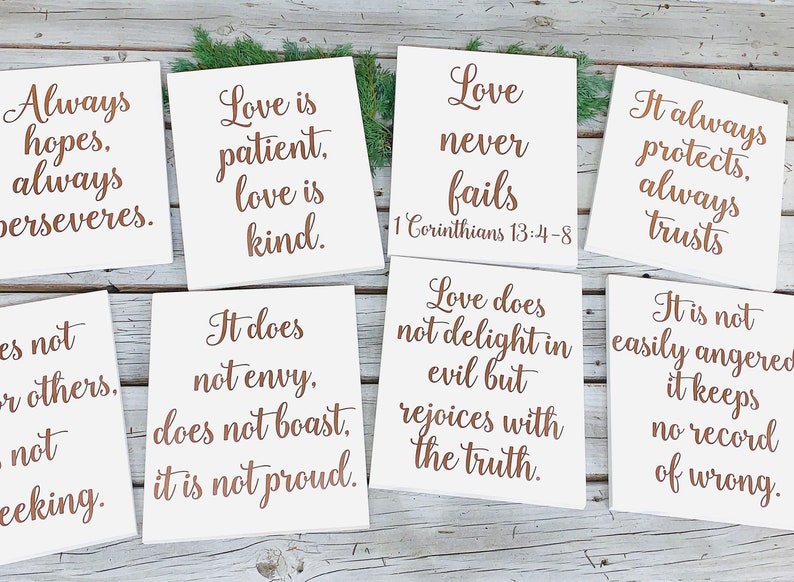 Always
hopes,
always
perseveres.
Love is
patient,
love is
kind.
Love
never
fails
1 Corinthians 13:4-8
It always
protects,
always
trusts
not
others,
not
It does
not envy,
does not boast,
it is not proud.
Love does
not delight in
evil but
rejoices with
the truth.
It is not
easily angered
it keeps
no record
of wrong.